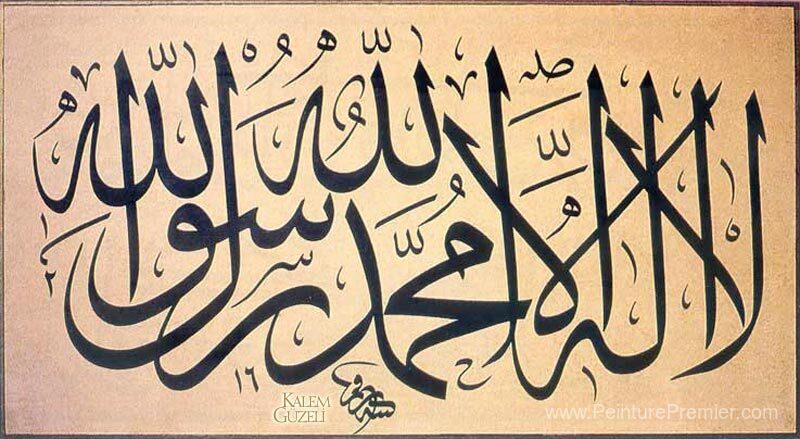 لا اله الا الله محمد رسول الله
١٢١٦
KALEM
GÜZELİ
www.PeinturePremier.com